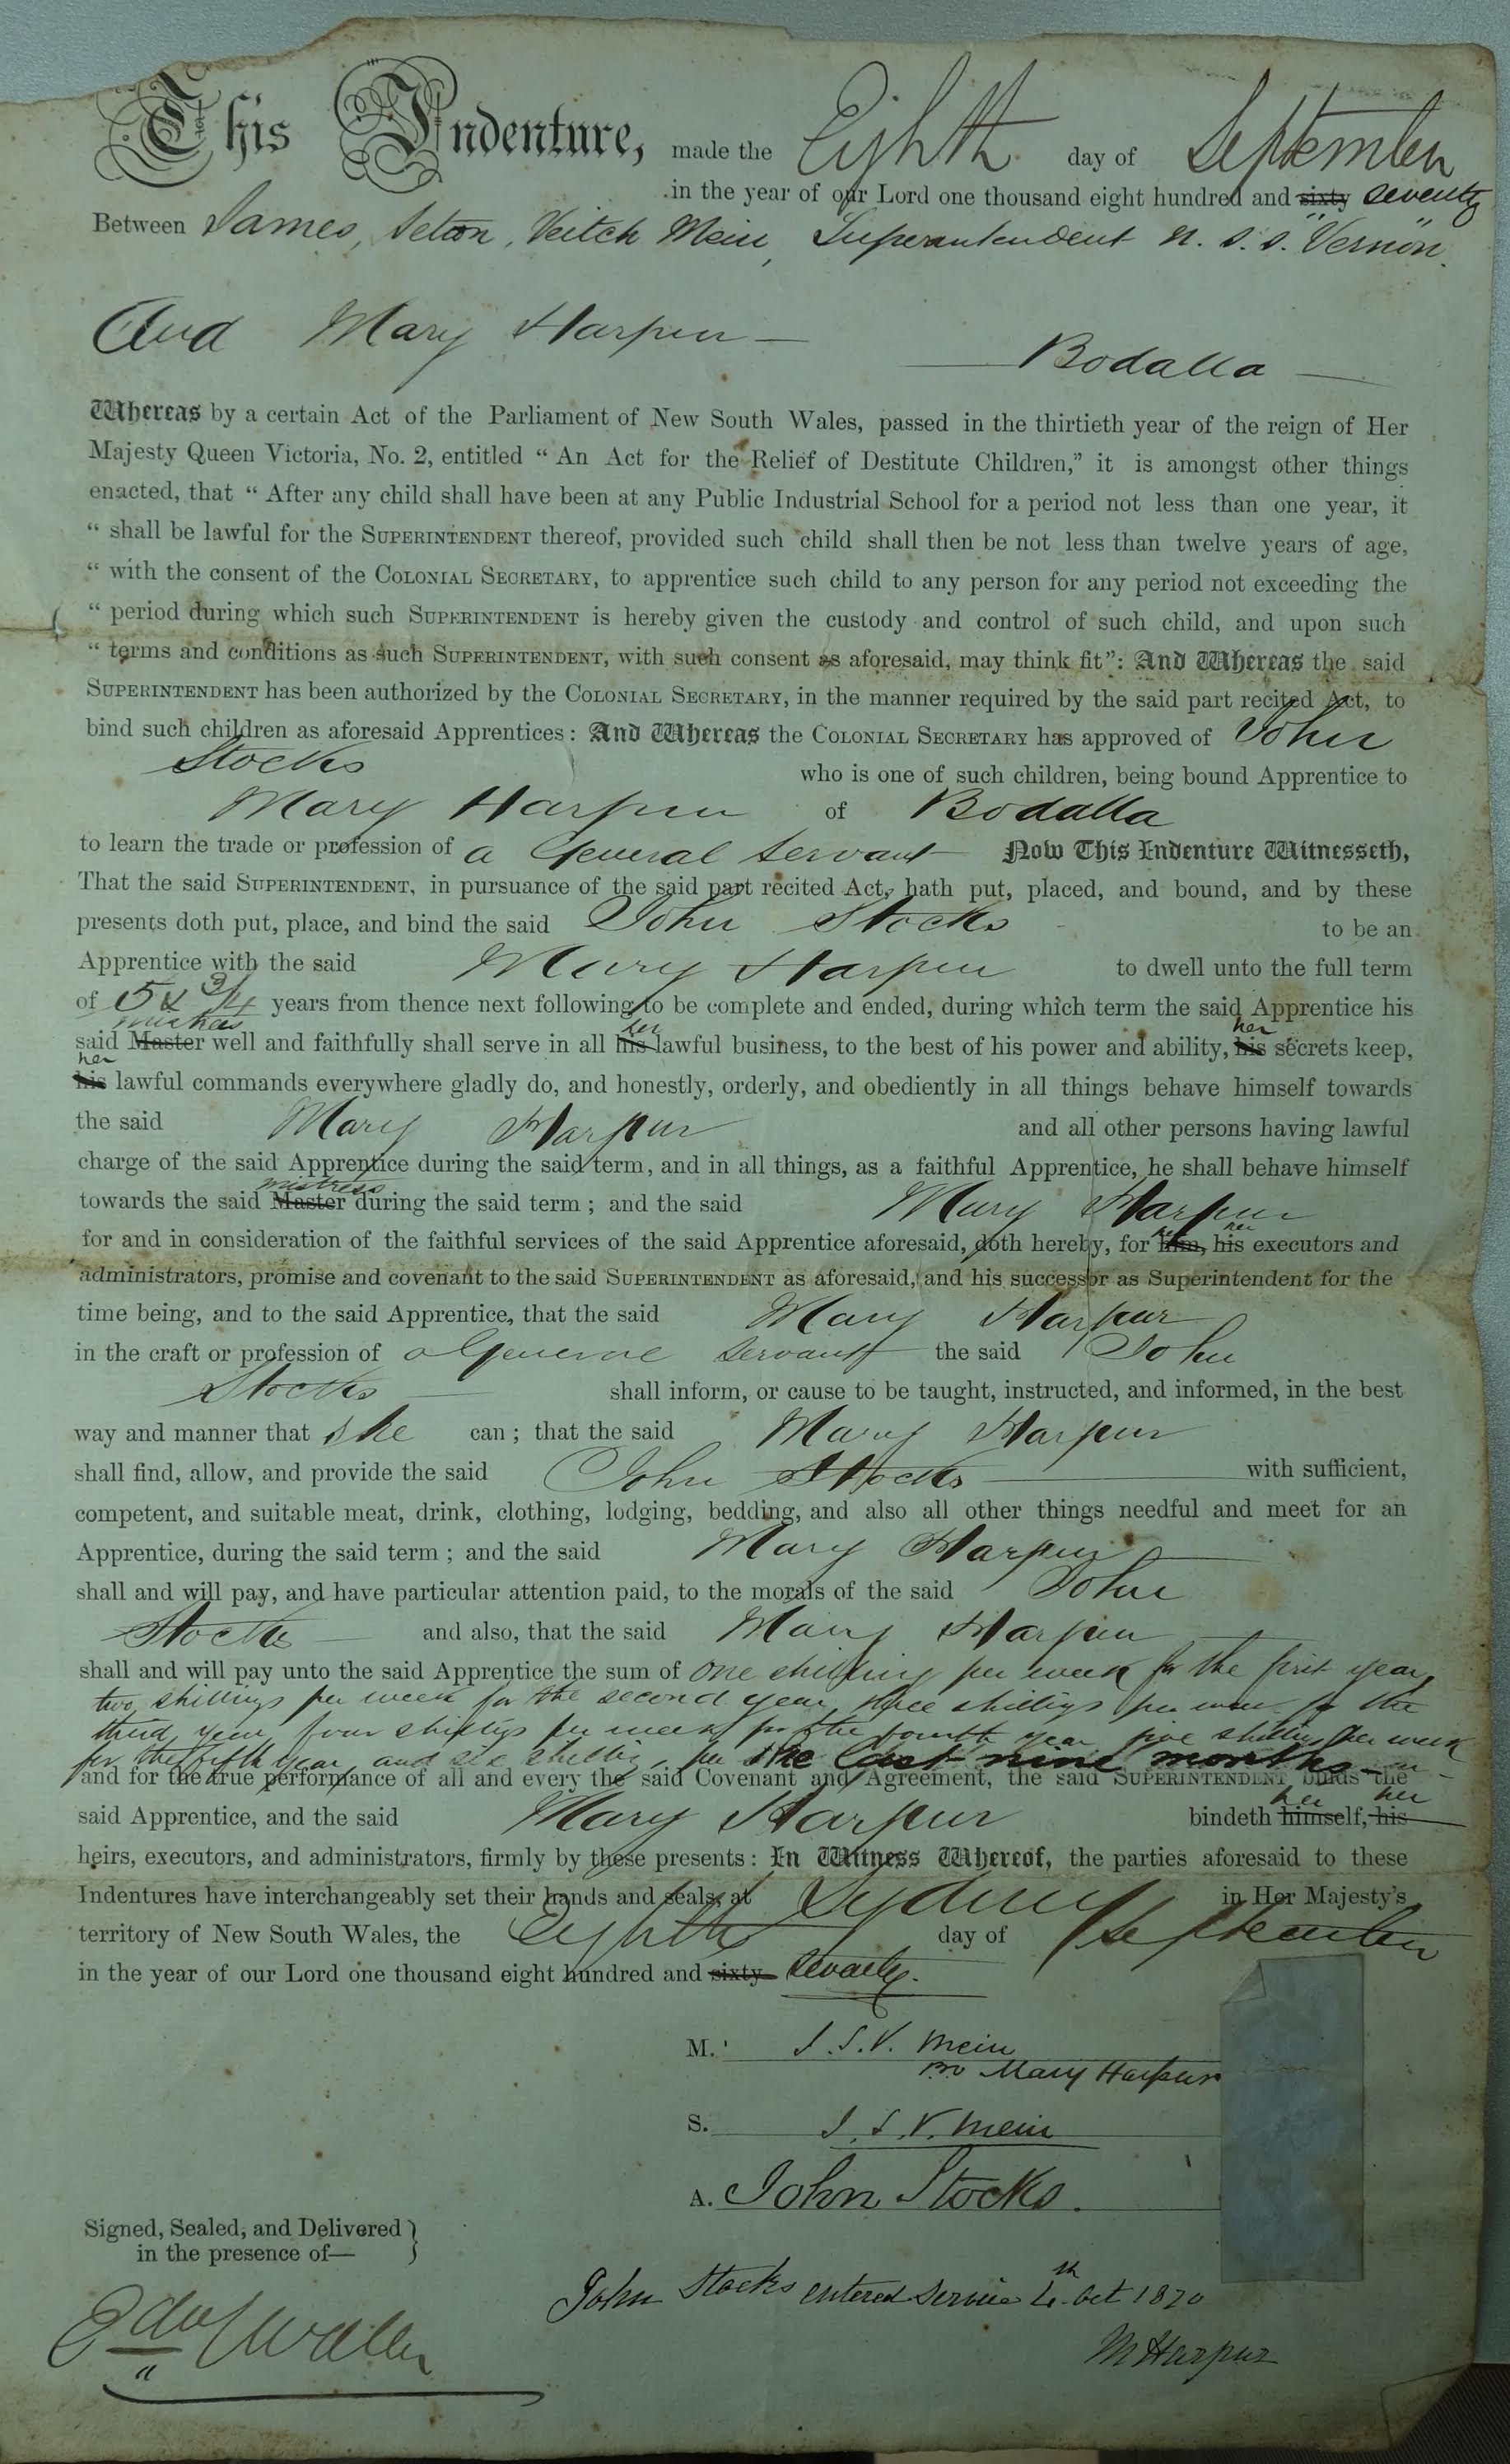 This Indenture, made the Eighth day of September
in the year of our Lord one thousand eight hundred and sixty seventy
Between James, Seton, Veitch Mein, Superintendent N. S. S. "Vernon".
And Mary Harpur — — Bodalla —
Whereas by a certain Act of the Parliament of New South Wales, passed in the thirtieth year of the reign of Her
Majesty Queen Victoria, No. 2, entitled “ An Act for the Relief of Destitute Children,” it is amongst other things
enacted, that “ After any child shall have been at any Public Industrial School for a period not less than one year, it
“ shall be lawful for the SUPERINTENDENT thereof, provided such child shall then be not less than twelve years of age,
“ with the consent of the COLONIAL SECRETARY, to apprentice such child to any person for any period not exceeding the
“ period during which such SUPERINTENDENT is hereby given the custody and control of such child, and upon such
“ terms and conditions as such SUPERINTENDENT, with such consent as aforesaid, may think fit”: And Whereas the said
SUPERINTENDENT has been authorized by the COLONIAL SECRETARY, in the manner required by the said part recited Act, to
bind such children as aforesaid Apprentices: And Whereas the COLONIAL SECRETARY has approved of John
Stocks who is one of such children, being bound Apprentice to
Mary Harpur of Bodalla
to learn the trade or profession of a General Servant Now This Indenture Witnesseth,
That the said SUPERINTENDENT, in pursuance of the said part recited Act, hath put, placed, and bound, and by these
presents doth put, place, and bind the said John Stocks to be an
Apprentice with the said Mary Harpur to dwell unto the full term
of 5 & 3/4 years from thence next following to be complete and ended, during which term the said Apprentice his
said Master mistress well and faithfully shall serve in all his her lawful business, to the best of his power and ability, his her secrets keep,
his her lawful commands everywhere gladly do, and honestly, orderly, and obediently in all things behave himself towards
the said Mary Harpur and all other persons having lawful
charge of the said Apprentice during the said term, and in all things, as a faithful Apprentice, he shall behave himself
towards the said Master mistress during the said term ; and the said Mary Harpur
for and in consideration of the faithful services of the said Apprentice aforesaid, doth hereby, for him, her his her executors and
administrators, promise and covenant to the said SUPERINTENDENT as aforesaid, and his successor as Superintendent for the
time being, and to the said Apprentice, that the said Mary Harpur
in the craft or profession of a General Servant the said John
Stocks — shall inform, or cause to be taught, instructed, and informed, in the best
way and manner that she can ; that the said Mary Harpur
shall find, allow, and provide the said John Stocks — with sufficient,
competent, and suitable meat, drink, clothing, lodging, bedding, and also all other things needful and meet for an
Apprentice, during the said term ; and the said Mary Harpur —
shall and will pay, and have particular attention paid, to the morals of the said John
Stocks — and also, that the said Mary Harpur —
shall and will pay unto the said Apprentice the sum of one shilling per week for the first year,
two shillings per week for the second year, three shillings per week for the
third year, four shillings per week for the fourth year five shillings per week
for the fifth year and six shillings per the last nine months —
and for the true performance of all and every the said Covenant and Agreement, the said SUPERINTENDENT binds the
said Apprentice, and the said Mary Harpur bindeth himself, her his her
heirs, executors, and administrators, firmly by these presents : In Witness Whereof, the parties aforesaid to these
Indentures have interchangeably set their hands and seals, at Sydney in Her Majesty's
territory of New South Wales, the Eighth day of September
in the year of our Lord one thousand eight hundred and sixty seventy.
M. J. S. V. Mein
pro Mary Harpur
S. J. S. V. Mein
A. John Stocks.
Signed, Sealed, and Delivered
in the presence of—
John Stocks entered service 4th Oct 1870
M Harpur